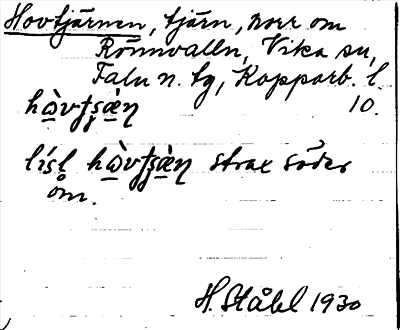 Hovtjärnen, tjärn, norr om
Rönnvalln, Vika sn,
Falu n. tg, Kopparb. l.
10.
strax söder
om.
H. Ståhl 1930